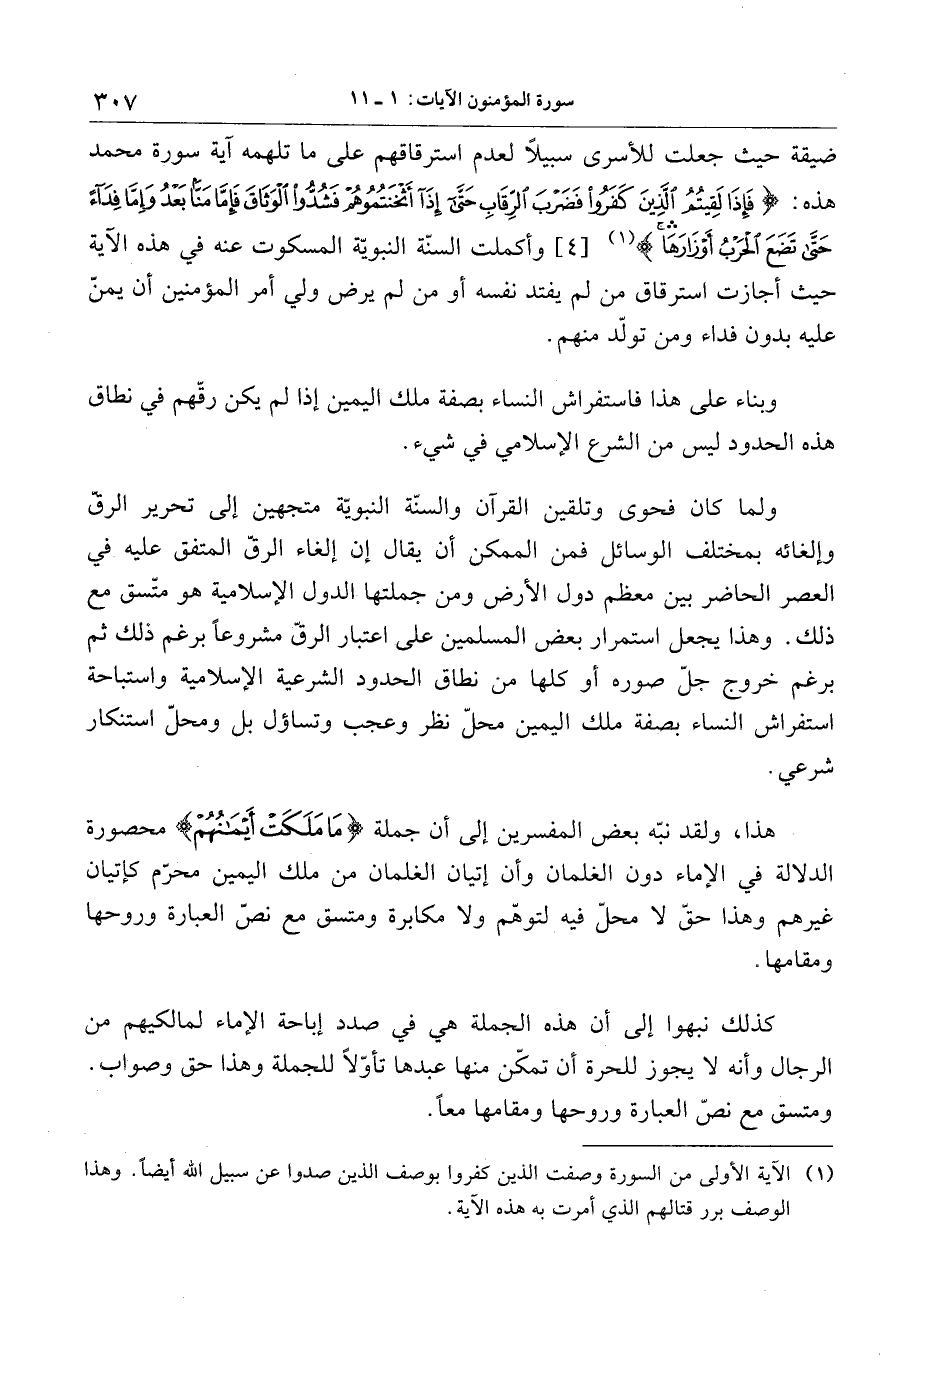 سورة المؤمنون الآيات: ١ - ١١ ٣٠٧
ضيقة حيث جعلت للأسرى سبيلاً لعدم استرقاقهم على ما تلهمه آية سورة محمد
هذه: ﴿ فَإِذَا لَقِيتُمُ ٱلَّذِينَ كَفَرُوا۟ فَضَرْبَ ٱلرِّقَابِ حَتَّىٰٓ إِذَآ أَثْخَنتُمُوهُمْ فَشُدُّوا۟ ٱلْوَثَاقَ فَإِمَّا مَنًّۢا بَعْدُ وَإِمَّا فِدَآءً
حَتَّىٰ تَضَعَ ٱلْحَرْبُ أَوْزَارَهَا ۚ ﴾(١) [٤] وأكملت السنّة النبويّة المسكوت عنه في هذه الآية
حيث أجازت استرقاق من لم يفتد نفسه أو من لم يرض ولي أمر المؤمنين أن يمنّ
عليه بدون فداء ومن تولّد منهم.
وبناء على هذا فاستفراش النساء بصفة ملك اليمين إذا لم يكن رقّهم في نطاق
هذه الحدود ليس من الشرع الإسلامي في شيء.
ولما كان فحوى وتلقين القرآن والسنّة النبويّة متجهين إلى تحرير الرقّ
وإلغائه بمختلف الوسائل فمن الممكن أن يقال إن إلغاء الرقّ المتفق عليه في
العصر الحاضر بين معظم دول الأرض ومن جملتها الدول الإسلامية هو متّسق مع
ذلك. وهذا يجعل استمرار بعض المسلمين على اعتبار الرقّ مشروعاً برغم ذلك ثم
برغم خروج جلّ صوره أو كلها من نطاق الحدود الشرعية الإسلامية واستباحة
استفراش النساء بصفة ملك اليمين محلّ نظر وعجب وتساؤل بل ومحلّ استنكار
شرعي.
هذا، ولقد نبّه بعض المفسرين إلى أن جملة ﴿مَا مَلَكَتْ أَيْمَٰنُهُمْ﴾ محصورة
الدلالة في الإماء دون الغلمان وأن إتيان الغلمان من ملك اليمين محرّم كإتيان
غيرهم وهذا حقّ لا محلّ فيه لتوهّم ولا مكابرة ومتسق مع نصّ العبارة وروحها
ومقامها.
كذلك نبهوا إلى أن هذه الجملة هي في صدد إباحة الإماء لمالكيهم من
الرجال وأنه لا يجوز للحرة أن تمكّن منها عبدها تأوّلاً للجملة وهذا حق وصواب.
ومتسق مع نصّ العبارة وروحها ومقامها معاً.
(١) الآية الأولى من السورة وصفت الذين كفروا بوصف الذين صدوا عن سبيل الله أيضاً. وهذا
الوصف برر قتالهم الذي أمرت به هذه الآية.